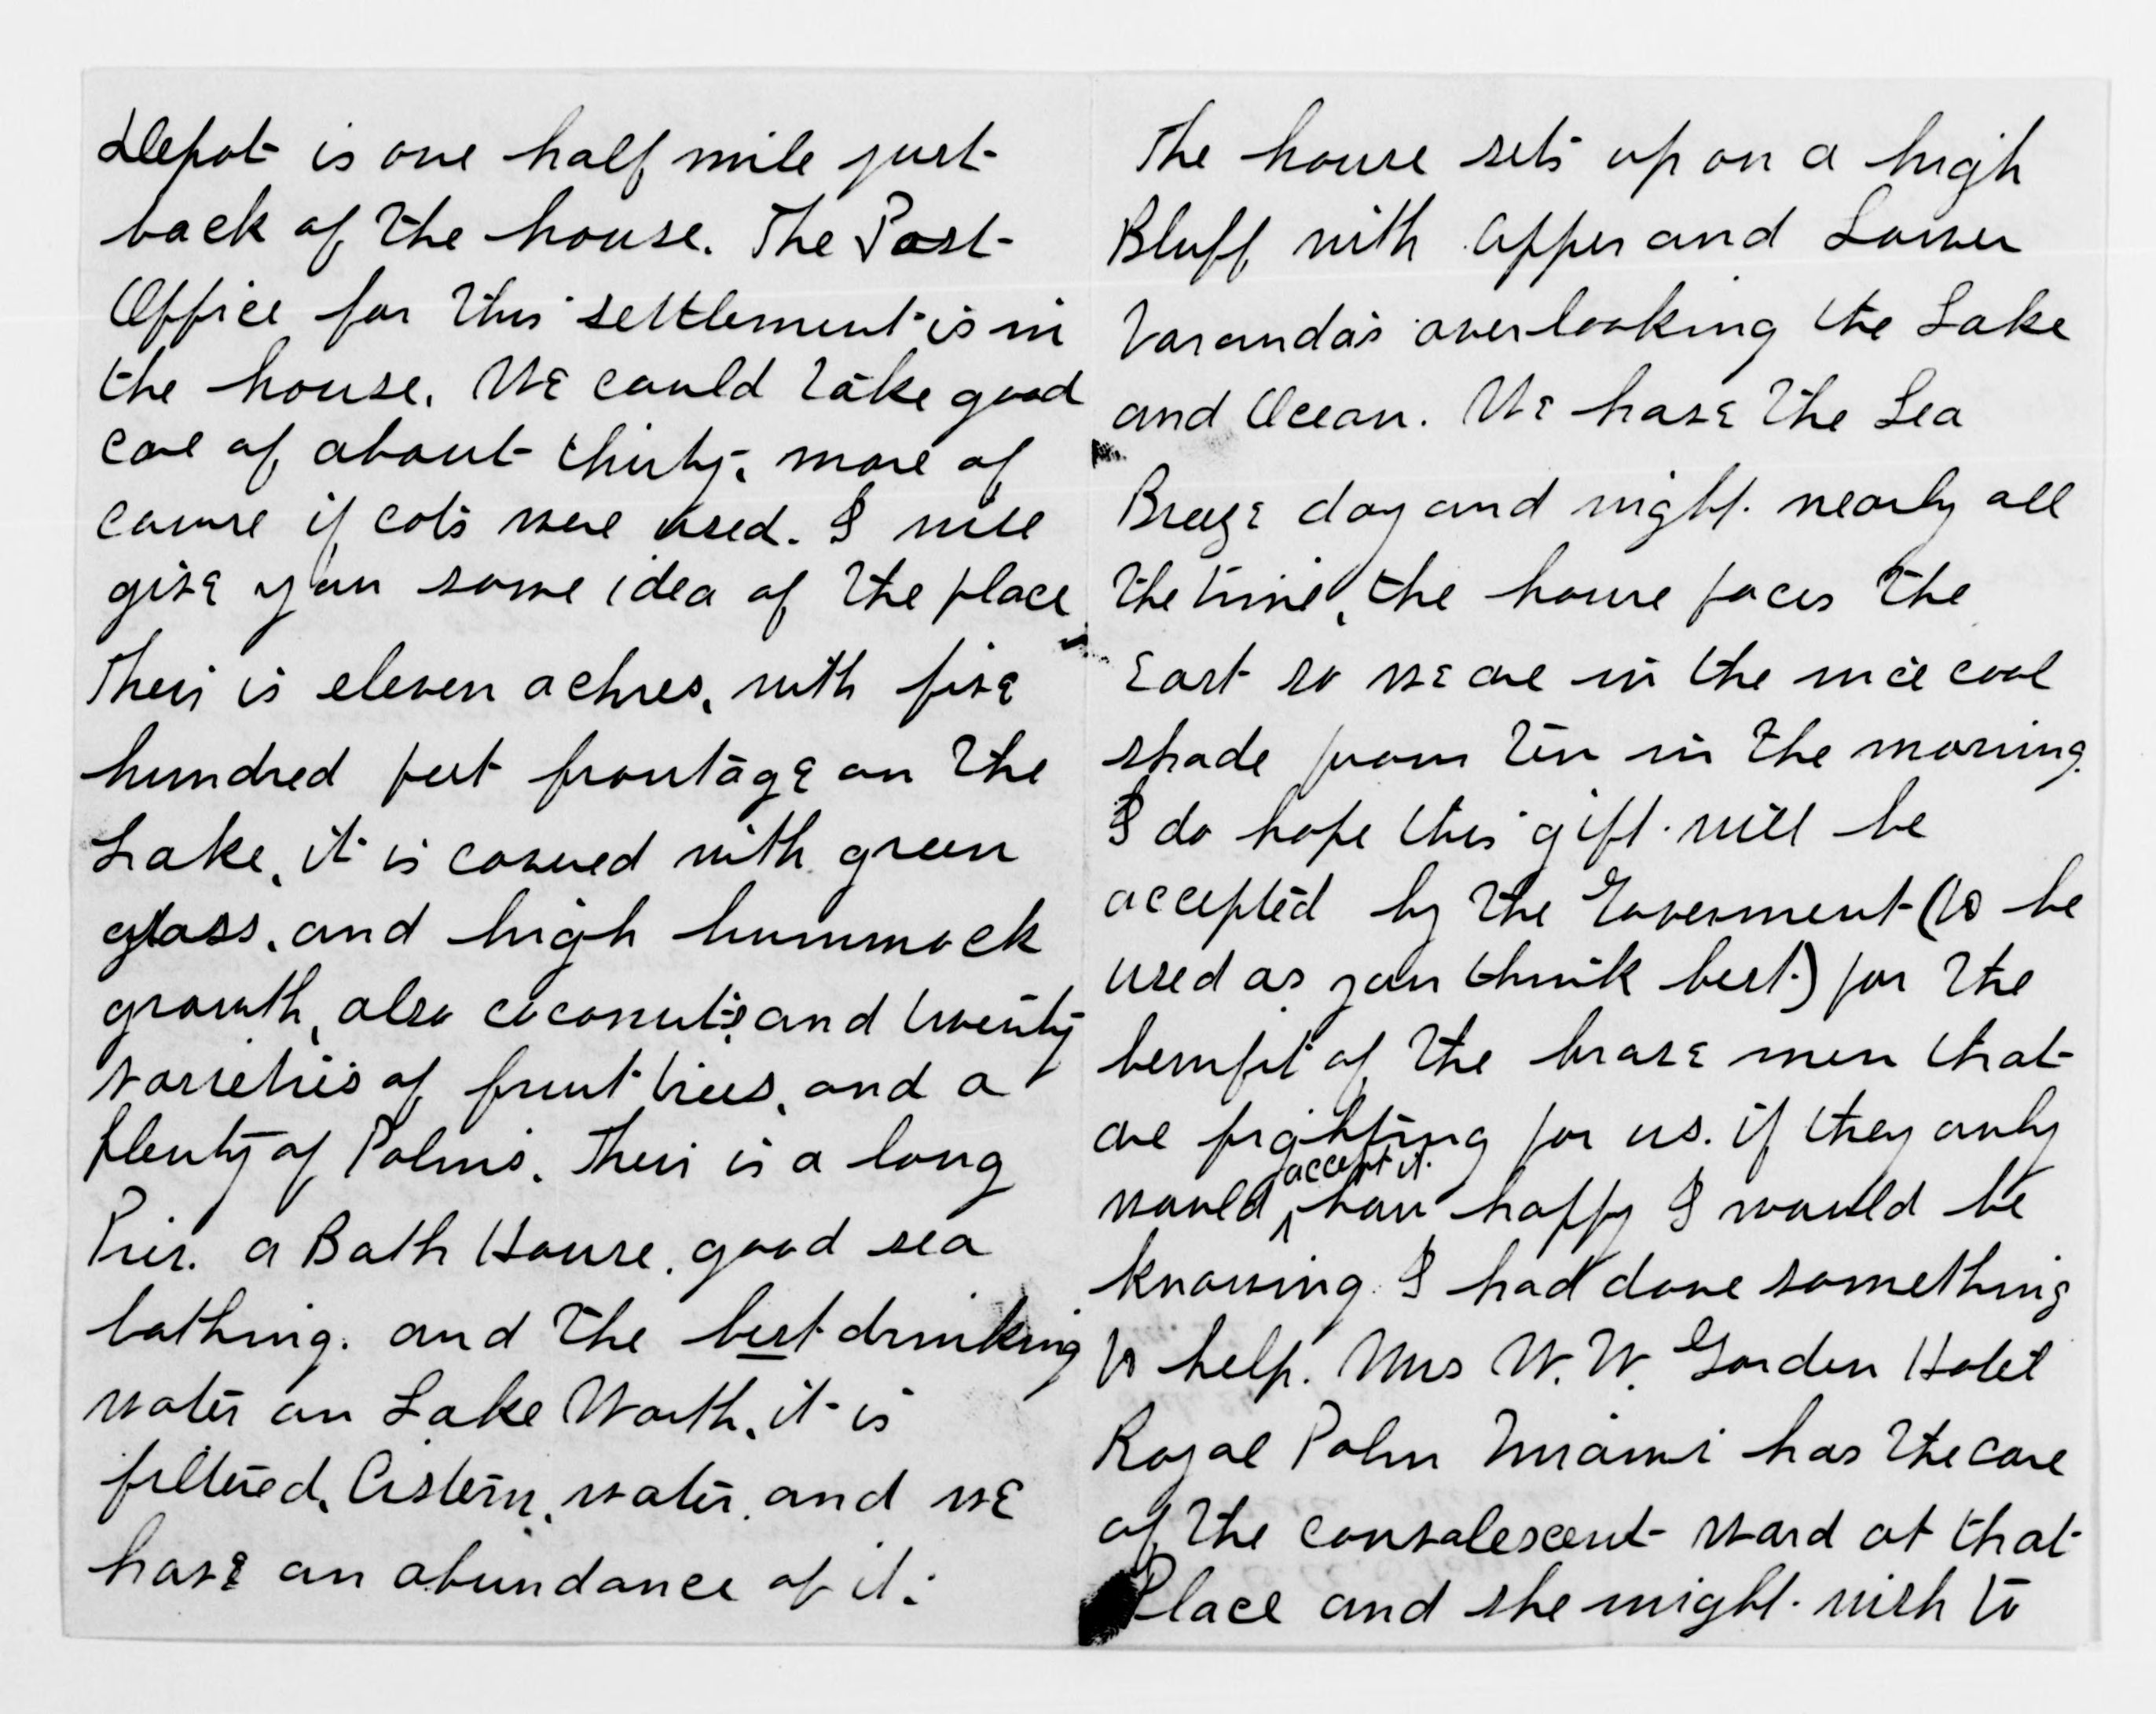 Depot is one half mile just
back of the house. The Post
Office for this settlement is in
the house. We could take good
care of about thirty, more of
course if cots were used. I will
give you some idea of the place
Their is eleven achres, with five
hundred feet frontage on the
Lake, it is covered with green
grass, and high hummock
growth, also coconuts, and twenty
varieties of fruit trees, and a
plenty of Palms. Their is a long
Pier. a Bath House, good sea
bathing. and the best drinking
water on Lake Worth, it is
filtered, Cistern, water, and we
have an abundance of it.
The house sets up on a high
Bluff with upper and Lower
Varandas overlooking the Lake
and Ocean. We have the Sea
Breeze day and night. nearly all
the time, the house faces the
East so we are in the nice cool
shade from ten in the morning.
I do hope this gift will be
accepted by the Goverment (to be
used as you think best) for the
benifit of the brave men that
are fighting for us. if they only
would accept it. how happy I would be
knowing I had done something
to help. Mrs W. W. Gorden Hotel
Royal Palm Miami has the care
of the convalescent ward at that
Place and she might wish to